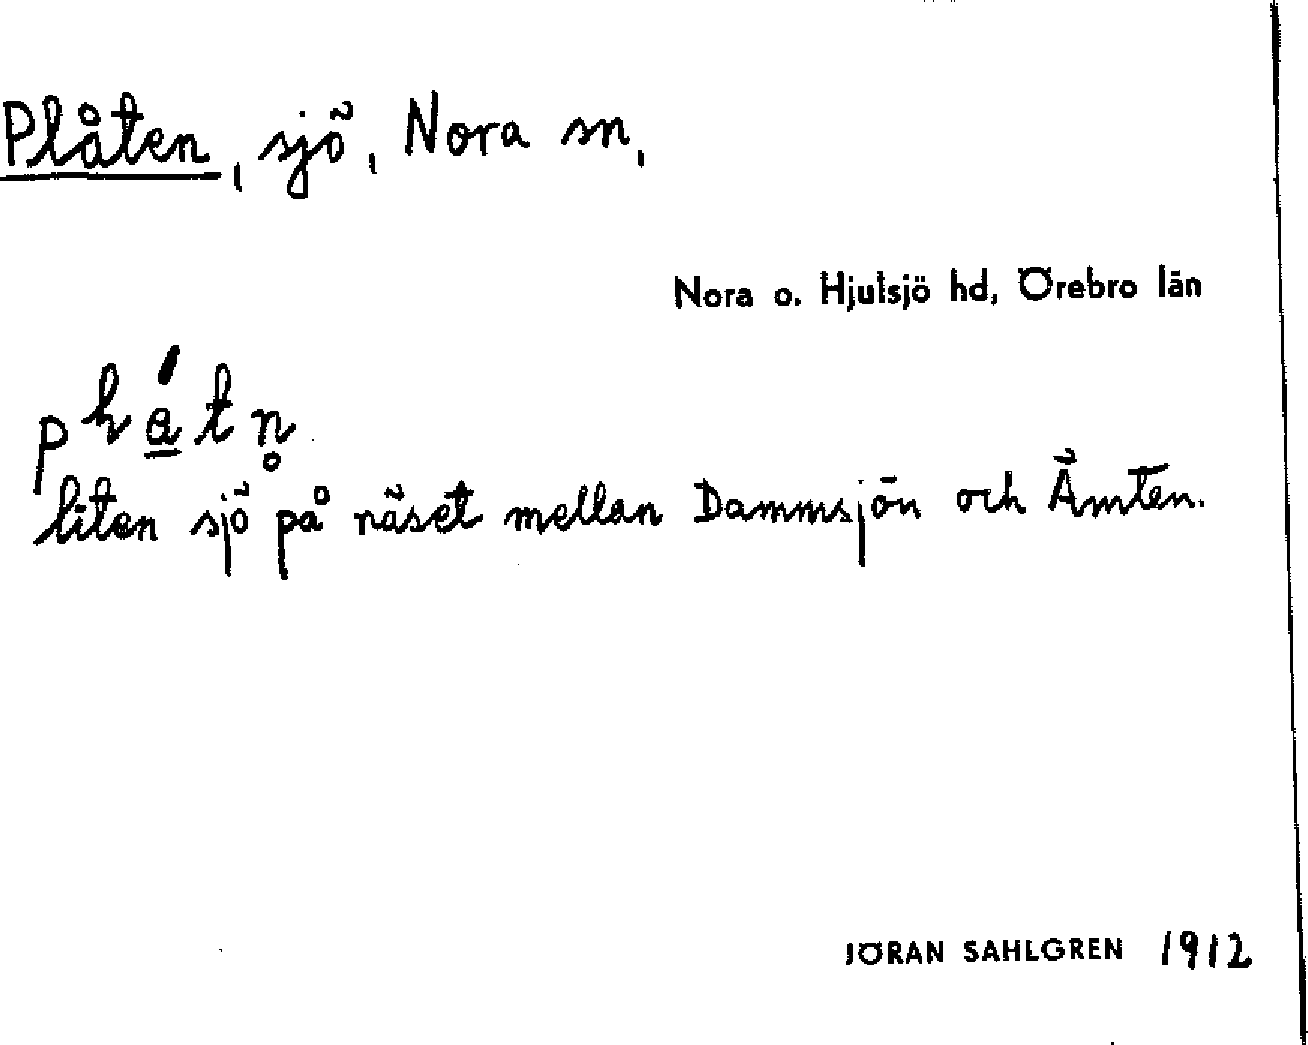 Plåten, sjö, Nora sn,
Nora o. Hjulsjö hd, Örebro län
liten sjö på näset mellan Dammsjön och Ämten.
JÖRAN SAHLGREN 1912